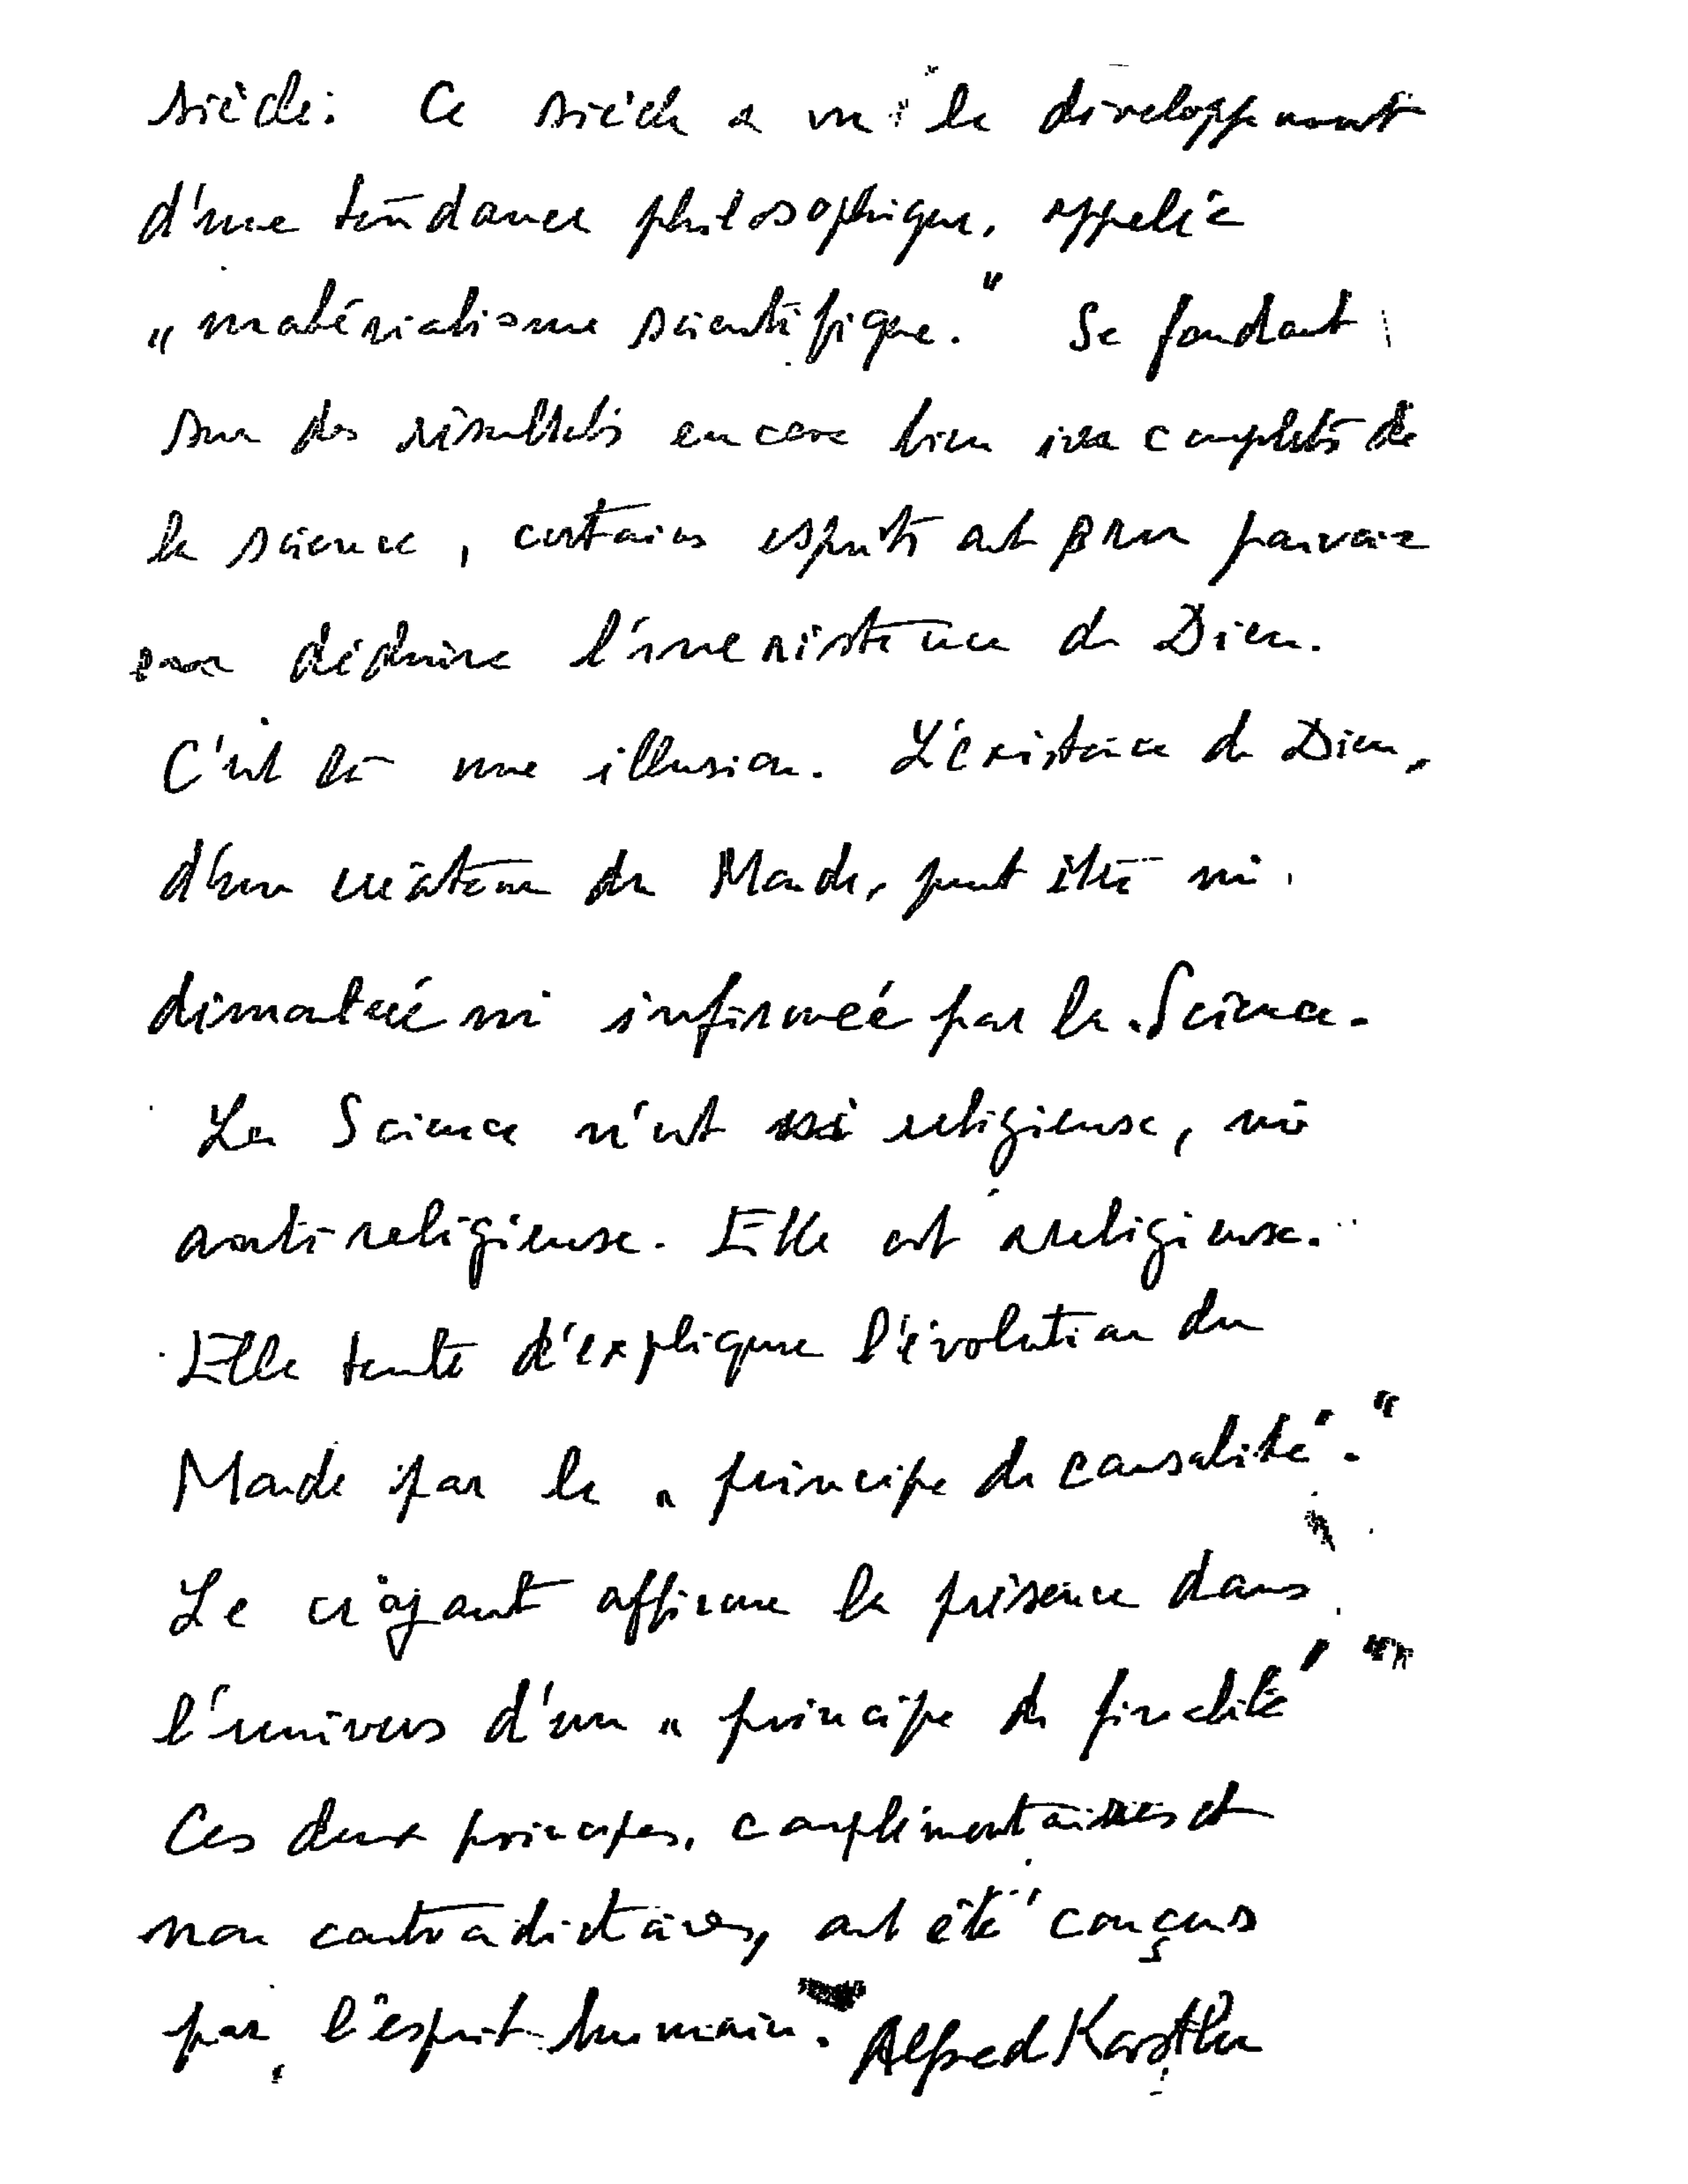 siècle. Ce siècle a vu le développement
d'une tendance philosophique, appelée
„matérialisme scientifique." Se fondant
sur des résultats encore bien incomplets de
la science, certains esprits ont pru pouvoir
en déduire l'inexistence de Dieu.
C'est là une illusion. L'existence de Dieu,
d'un créateur du Monde, peut être ni
démontrée ni infirmée par la Science.
La Science n'est ni religieuse, ni
antireligieuse. Elle est areligieuse.
Elle tente d'expliquer l'évolution du
Monde par le „principe de causalité."
Le croyant affirme la présence dans
l'univers d'un „principe de finalité"
Ces deux principes, complémentaires et
non contradictoires, ont été conçus
par l'esprit humain. Alfred Kastler